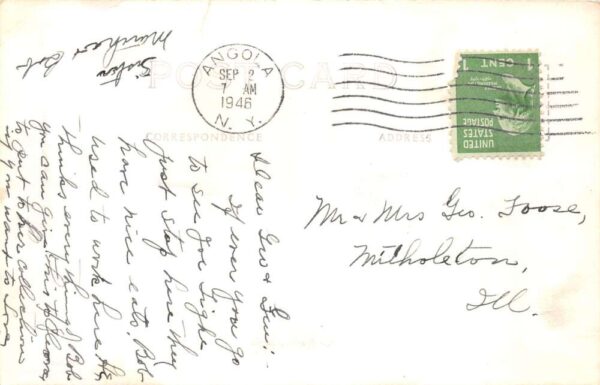 POST CARD
CORRESPONDENCE
ADDRESS
ANGOLA
SEP 2
7 AM
1946
N. Y.
1 CENT 1
UNITED
STATES
POSTAGE
Mr & Mrs Geo. Foose,
Ill.
Dear Geo &
If ever you go
to see Joe
just stop here they
have nice eats Bob
used to work here He
thinks every thing of Bob
you can give this to
to put to her collection
if you want to
Sister
Bob